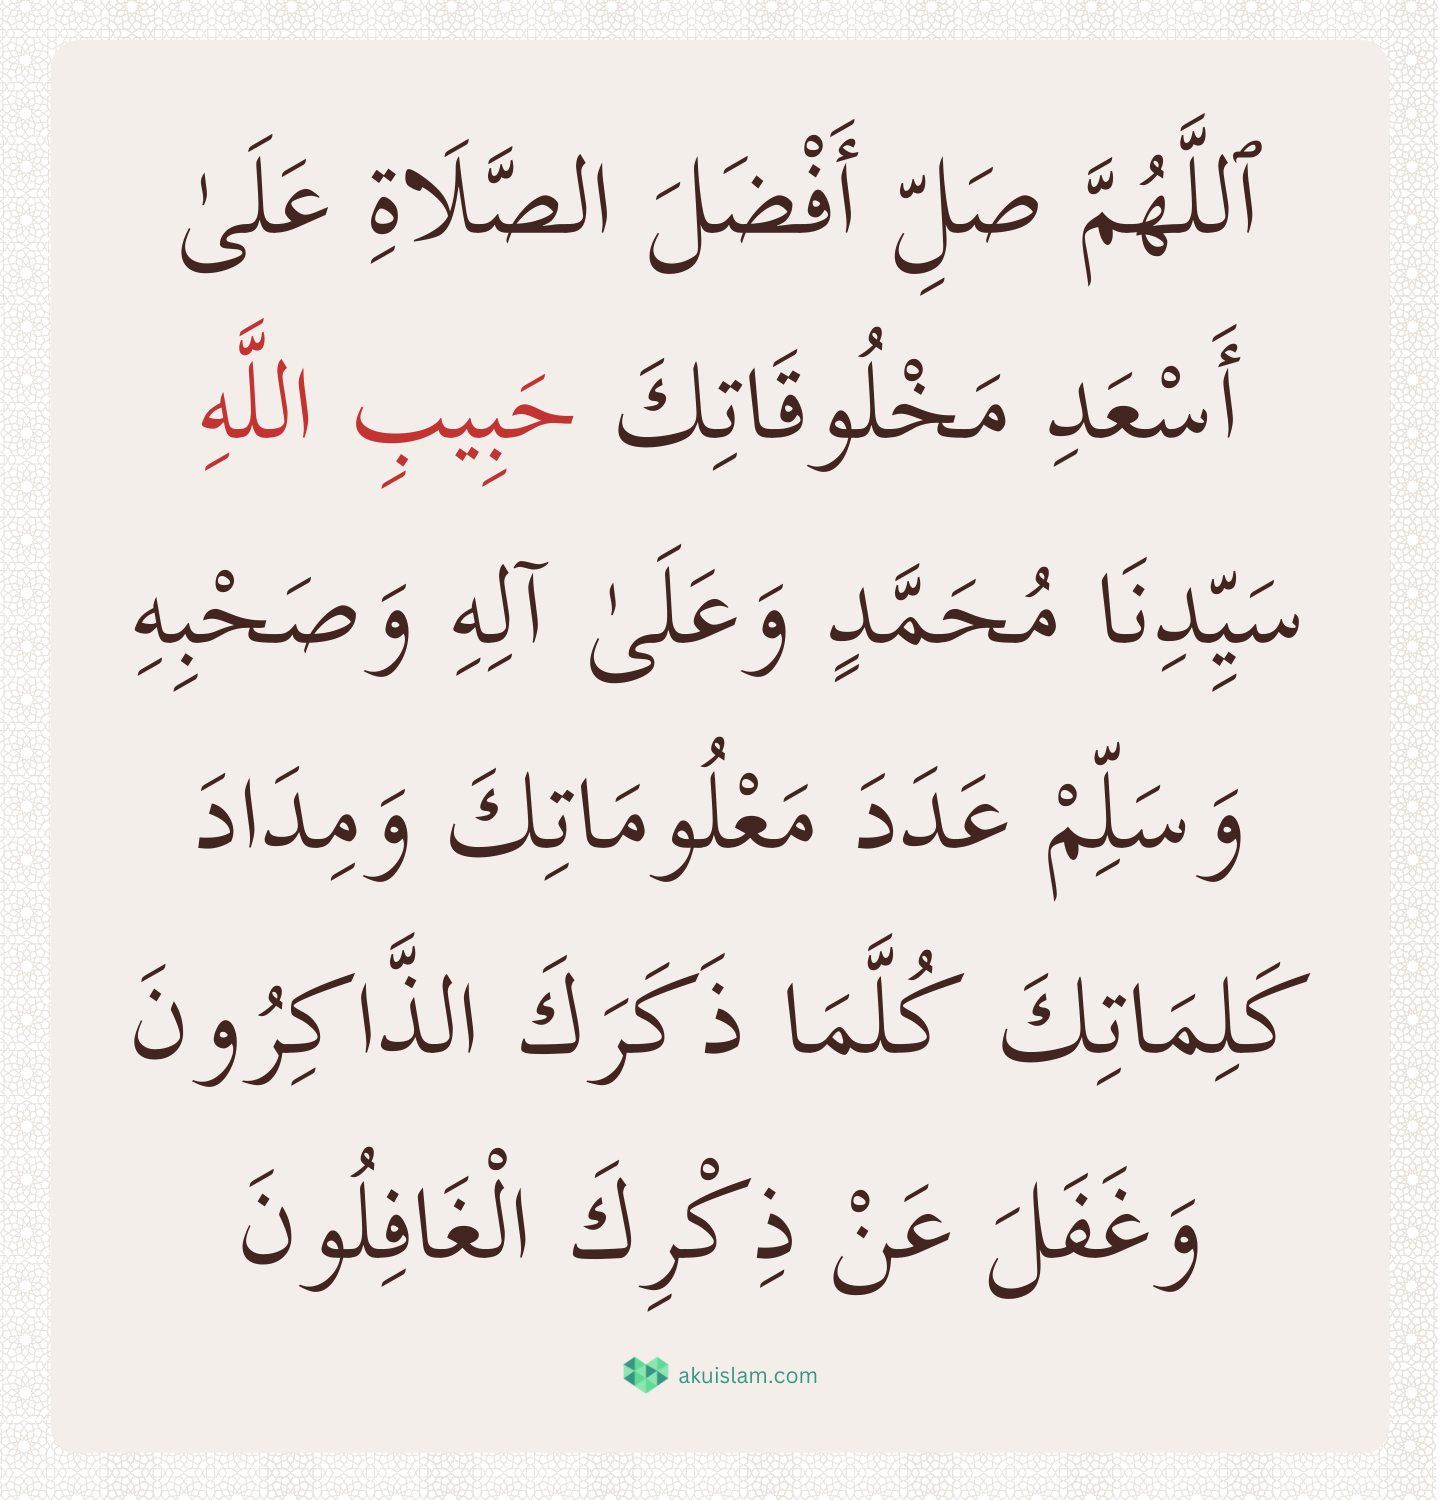 ٱللَّهُمَّ صَلِّ أَفْضَلَ الصَّلَاةِ عَلَىٰ
أَسْعَدِ مَخْلُوقَاتِكَ حَبِيبِ اللَّهِ
سَيِّدِنَا مُحَمَّدٍ وَعَلَىٰ آلِهِ وَصَحْبِهِ
وَسَلِّمْ عَدَدَ مَعْلُومَاتِكَ وَمِدَادَ
كَلِمَاتِكَ كُلَّمَا ذَكَرَكَ الذَّاكِرُونَ
وَغَفَلَ عَنْ ذِكْرِكَ الْغَافِلُونَ
akuislam.com